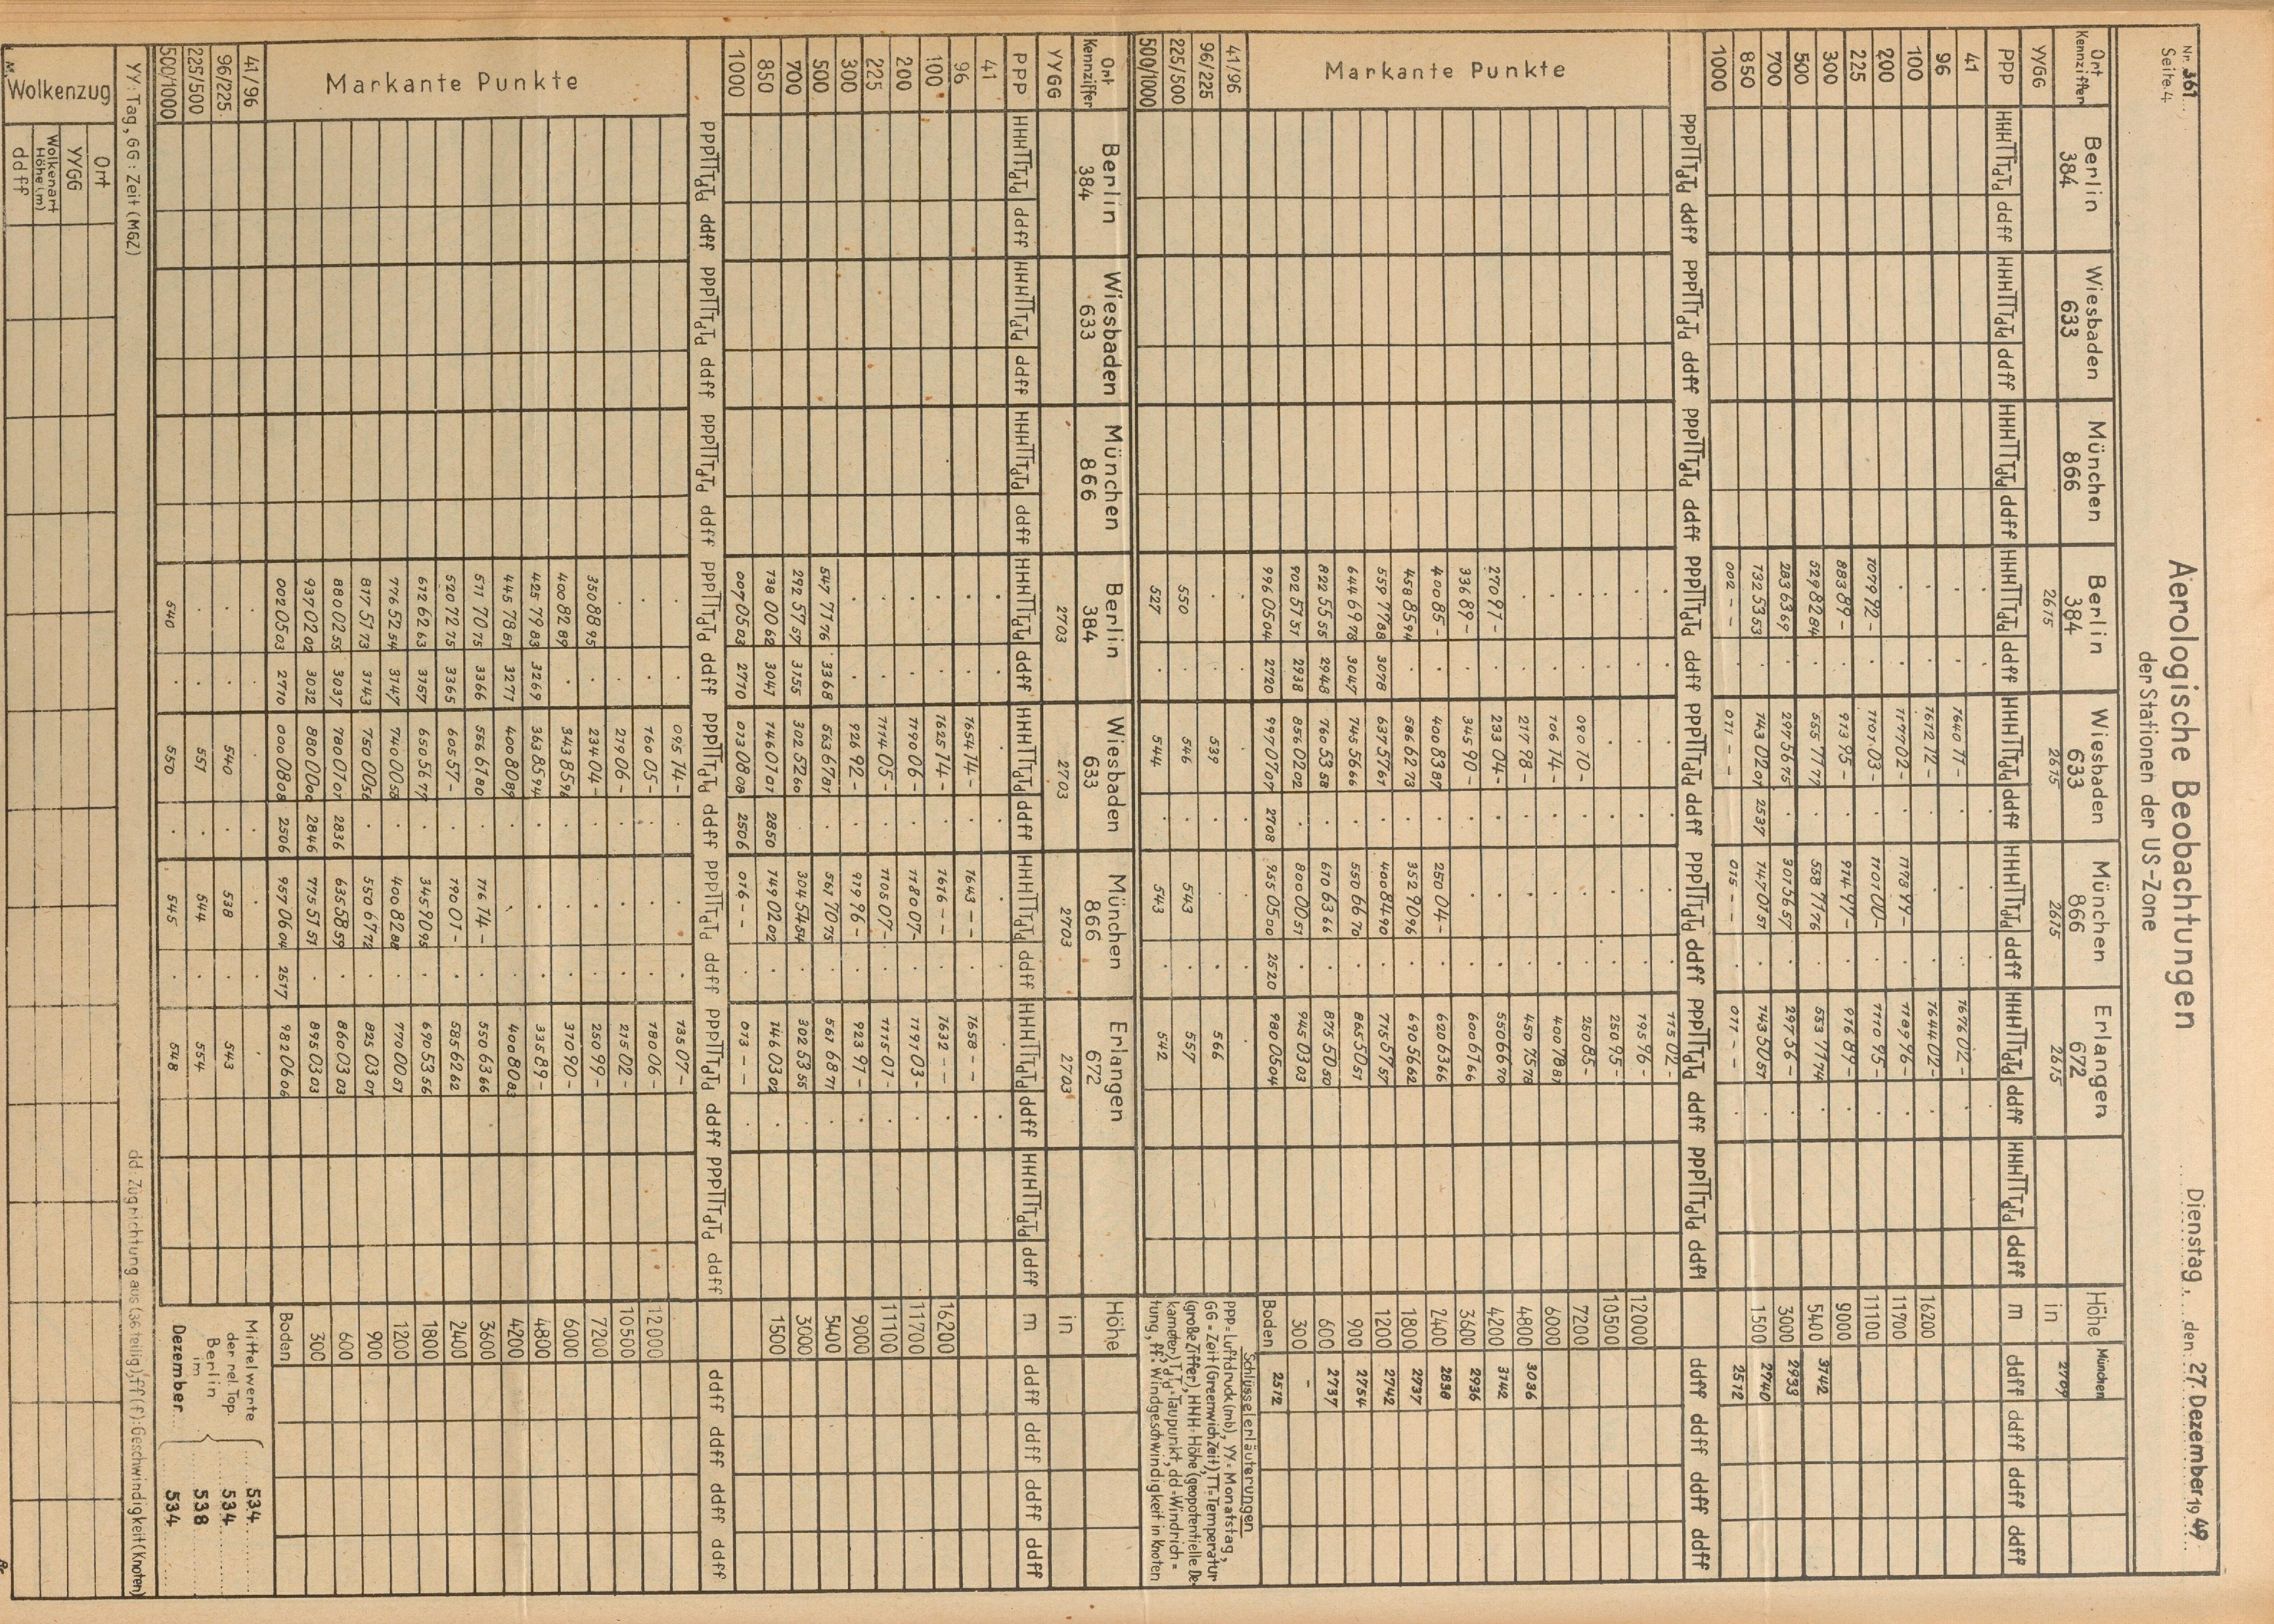 Nr. 361
Seite 4
Aerologische Beobachtungen
der Stationen der US-Zone
Dienstag, den 27. Dezember 1949
Ort Kennziffer Berlin 384 Wiesbaden 633 München 866 Berlin 384 Wiesbaden 633 München 866 Erlangen 672 Höhe München
YYGG 2615 2615 2615 2615 in 2709
PPP HHHTTTdTd ddff HHHTTTdTd ddff HHHTTTdTd ddff HHHTTTdTd ddff HHHTTTdTd ddff HHHTTTdTd ddff HHHTTTdTd ddff HHHTTTdTd ddff m ddff ddff ddff ddff
41
96 1640 11- 1676 02-
100 1612 12- 1644 02- 16200
200 1177 02- 1178 99- 1189 96- 11700
225 1079 92- 1101 03- 1101 00- 1110 95- 11100
300 883 89- 913 95- 914 97- 916 89- 9000
500 529 82 84 555 77 77 558 77 76 553 77 74 5400 3142
700 283 63 69 297 56 75 301 56 57 297 56- 3000 2933
850 132 53 53 143 02 07 2537 147 01 51 143 50 51 1500 2740
1000 002 - - 011 - - 015 - - 011 - - 2512
PPPTTTdTd ddff PPPTTTdTd ddff PPPTTTdTd ddff PPPTTTdTd ddff PPPTTTdTd ddff PPPTTTdTd ddff PPPTTTdTd ddff PPPTTTdTd ddff ddff ddff ddff ddff
Markante Punkte
115 02-
195 96- 12000
250 95- 10500
090 10- 250 85- 7200
106 14- 400 78 81 6000
270 91- 217 98- 450 75 78 4800 3036
336 89- 233 04- 550 66 70 4200 3142
400 85- 345 90- 600 61 66 3600 2936
458 85 94 400 83 87 250 04- 620 63 66 2400 2838
559 77 88 3078 586 62 73 352 90 96 690 56 62 1800 2737
644 69 78 3047 637 57 61 400 84 90 715 57 57 1200 2742
822 55 55 2948 745 56 66 550 66 70 865 50 51 900 2754
902 57 51 2938 760 53 58 610 63 66 875 50 50 600 2737
856 02 02 800 00 51 945 03 03 300 -
996 05 04 2720 997 07 07 2708 955 05 00 2520 980 05 04 Boden 2512
41/96
96/225 539 566
225/500 550 546 543 557
500/1000 527 544 543 542
Schlüsselerläuterungen
PPP = Luftdruck (mb), YY = Monatstag,
GG = Zeit (Greenwich Zeit), TT = Temperatur
(große Ziffer), HHH = Höhe (geopotentielle De-
kameter), TdTd = Taupunkt, dd = Windrich-
tung, ff = Windgeschwindigkeit in Knoten
Ort Kennziffer Berlin 384 Wiesbaden 633 München 866 Berlin 384 Wiesbaden 633 München 866 Erlangen 672 Höhe
YYGG 2703 2703 2703 2703 in
PPP HHHTTTdTd ddff HHHTTTdTd ddff HHHTTTdTd ddff HHHTTTdTd ddff HHHTTTdTd ddff HHHTTTdTd ddff HHHTTTdTd ddff HHHTTTdTd ddff m ddff ddff ddff ddff
41
96 1654 14- 1643 - - 1658 - -
100 1625 14- 1616 - - 1632 - - 16200
200 1190 06- 1180 07- 1191 03- 11700
225 1114 05- 1105 07- 1115 01- 11100
300 926 92- 919 96- 923 97- 9000
500 547 71 76 3368 563 67 81 561 70 75 561 68 71 5400
700 292 57 57 3155 302 52 60 304 54 54 302 53 55 3000
850 138 00 62 3047 146 07 07 2850 149 02 02 146 03 02 1500
1000 007 05 03 2710 013 08 08 2506 016 - - 013 - -
PPPTTTdTd ddff PPPTTTdTd ddff PPPTTTdTd ddff PPPTTTdTd ddff PPPTTTdTd ddff PPPTTTdTd ddff PPPTTTdTd ddff PPPTTTdTd ddff ddff ddff ddff ddff
Markante Punkte
095 14- 135 07-
160 05- 180 06- 12000
219 06- 215 02- 10500
350 88 95 234 04- 250 99- 7200
400 82 89 343 85 96 310 90- 6000
425 79 83 3269 363 85 94 335 89- 4800
445 78 81 3271 400 80 89 400 80 83 4200
511 70 75 3366 556 61 80 116 14- 550 63 66 3600
520 72 75 3365 605 57- 190 01- 585 62 62 2400
612 62 63 3157 650 56 79 345 90 95 690 53 56 1800
776 52 54 3147 740 00 58 400 82 88 770 00 51 1200
817 51 73 3143 750 00 56 550 67 72 825 03 01 900
880 02 55 3037 780 07 07 2836 635 58 59 860 03 03 600
937 02 02 3032 880 00 00 2846 775 51 51 895 03 03 300
002 05 03 2710 000 08 08 2506 957 06 04 2517 982 06 06 Boden
41/96
96/225 540 538 543
225/500 557 544 554
500/1000 540 550 545 548
Mittelwerte
der rel. Top.
Berlin
im
Dezember
534
534
538
534
YY: Tag, GG: Zeit (MGZ) dd: Zugrichtung aus (36 teilig), ff(f): Geschwindigkeit (Knoten)
Wolkenzug
Ort
YYGG
Wolkenart
Höhe (m)
ddff